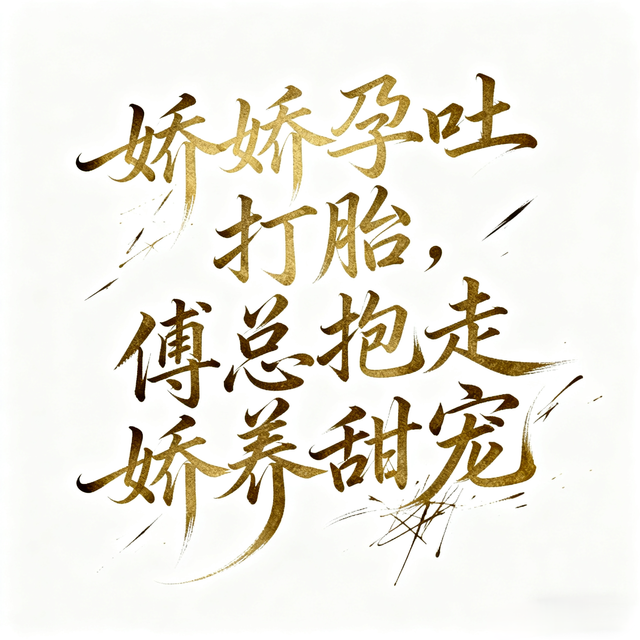 娇娇孕吐
打胎，
傅总抱走
娇养甜宠